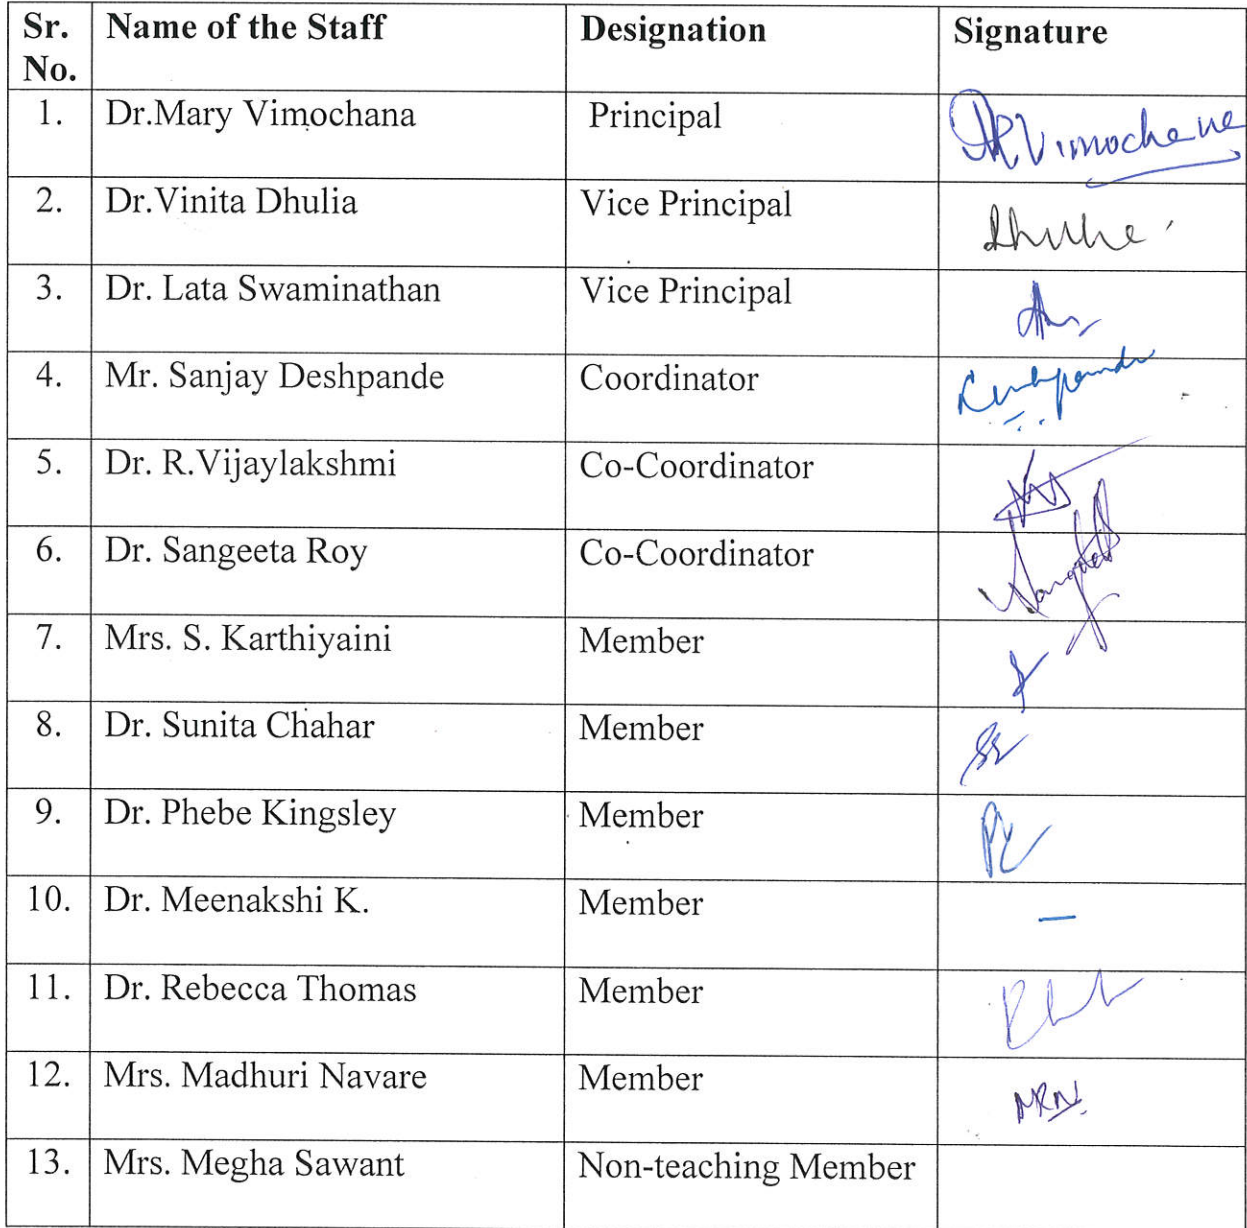 Sr. No. Name of the Staff Designation Signature
1. Dr.Mary Vimochana Principal Vimochana
2. Dr.Vinita Dhulia Vice Principal Dhulia
3. Dr. Lata Swaminathan Vice Principal
4. Mr. Sanjay Deshpande Coordinator
5. Dr. R.Vijaylakshmi Co-Coordinator
6. Dr. Sangeeta Roy Co-Coordinator
7. Mrs. S. Karthiyaini Member
8. Dr. Sunita Chahar Member
9. Dr. Phebe Kingsley Member
10. Dr. Meenakshi K. Member —
11. Dr. Rebecca Thomas Member
12. Mrs. Madhuri Navare Member MRN
13. Mrs. Megha Sawant Non-teaching Member